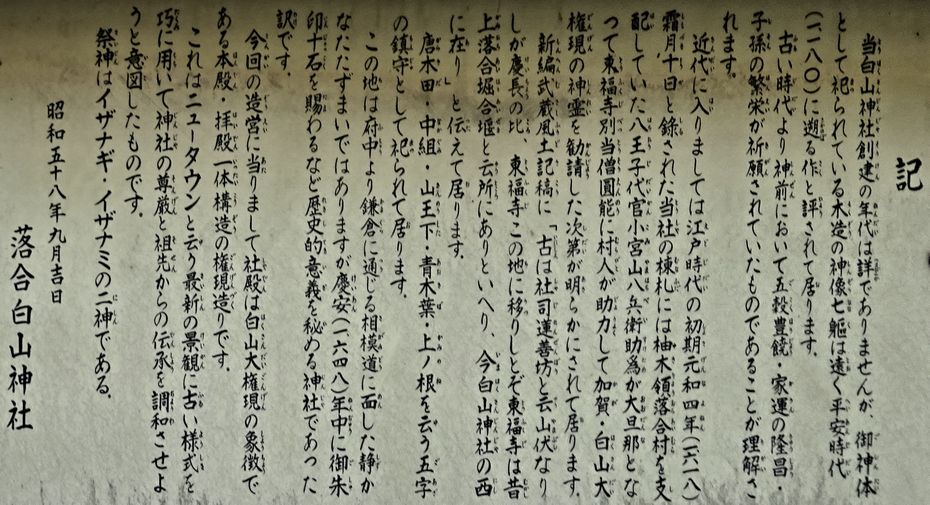 記
当白山神社創建の年代は詳でありませんが、御神体
として祀られている木造の神像七躯は遠く平安時代
(一一八〇)に遡る作と評されて居ります。
古い時代より神前において五穀豊饒・家運の隆昌・
子孫の繁栄が祈願されていたものであることが理解さ
れます。
近代に入りましては江戸時代の初期元和四年(一六一八)
霜月十日と録された当社の棟札には柚木領落合村を支
配していた八王子代官小宮山八兵衛助爲が大旦那とな
つて東福寺別当僧圓能に村人が助力して加賀・白山大
権現の神霊を勧請した次第が明らかにされて居ります。
新編武蔵風土記稿に「古は社司運善坊と云山伏なり
しが慶長の比、東福寺この地に移りしとぞ東福寺は昔
上落合堀合堰と云所にありといへり、今白山神社の西
に在り」と伝えて居ります。
唐木田・中組・山王下・青木葉・上ノ根を云う五字
の鎮守として祀られて居ります。
この地は府中より鎌倉に通じる相模道に面した静か
なたたずまいではありますが慶安(一六四八)年中に御朱
印十石を賜わるなど歴史的意義を秘める神社であった
訳です。
今回の造営に当りまして社殿は白山大権現の象徴で
ある本殿・拝殿一体構造の権現造りです。
これはニュータウンと云う最新の景観に古い様式を
巧に用いて神社の尊厳と祖先からの伝承を調和させよ
うと意図したものです。
祭神はイザナギ・イザナミの二神である。
昭和五十八年九月吉日
落合白山神社